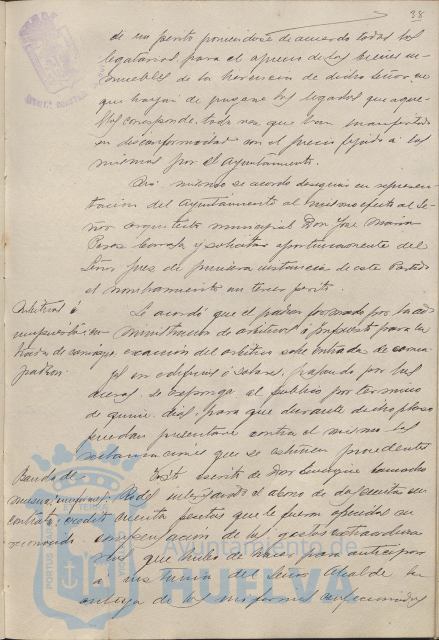 38
de un perito poniendose de acuerdo todos los
legatarios para el aprecio de los bienes in-
muebles de la herencia de dicho Señor, en
que hayan de pagarse los legados que a que-
llos corresponde, toda vez que han manifestado
su disconformidad con el precio fijado a los
mismos por el Ayuntamiento.
Asi mismo se acordó designar en represen-
tación del Ayuntamiento al mismo efecto al Se-
ñor Arquitecto municipal Don Jose Maria
Perez Carasa y solicitar oportunamente del
Señor Juez de primera instancia de este Partido
el nombramiento de un tercer perito.
Arbitrios é
impuestos: en-
trada de carruajes
padron.
Se acordó que el padron formado por la ad-
ministracion de arbitrios é impuestos para la
exacción del arbitrio sobre entrada de carrua-
jes en edificios ó solares, pasando por las
aceras, se exponga al público por término
de quince dias, para que durante dicho plazo
puedan presentarse contra el mismo las
reclamaciones que se estimen procedentes
Banda de
musica: uniformes:
contrato: credito
reconocido.
Visto escrito de Don Enrique Camacho
Rodz interesando el abono de doscientas cin-
cuenta pesetas que le fueron ofrecidas en
compensación de los gastos extraordina-
rios que hubo de hacer para anticipar
á instancia del Señor Alcalde la
entrega de los uniformes confeccionados
Ayuntamiento de
HUELVA
PORTUS